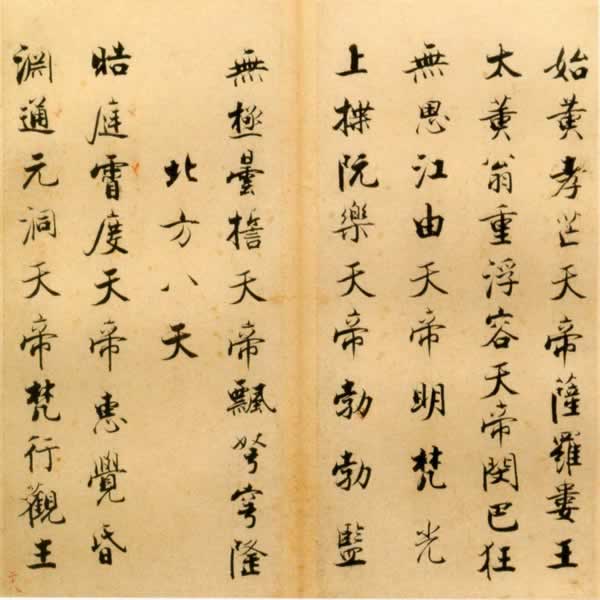 始黃孝芒天帝薩羅婁王
太黃翁重浮容天帝閔巴狂
無思江由天帝明梵光
上揲阮樂天帝勃勃監
無極曇誓天帝飄弩穹隆
北方八天
晧庭霄度天帝惠覺昏
淵通元洞天帝梵行觀生